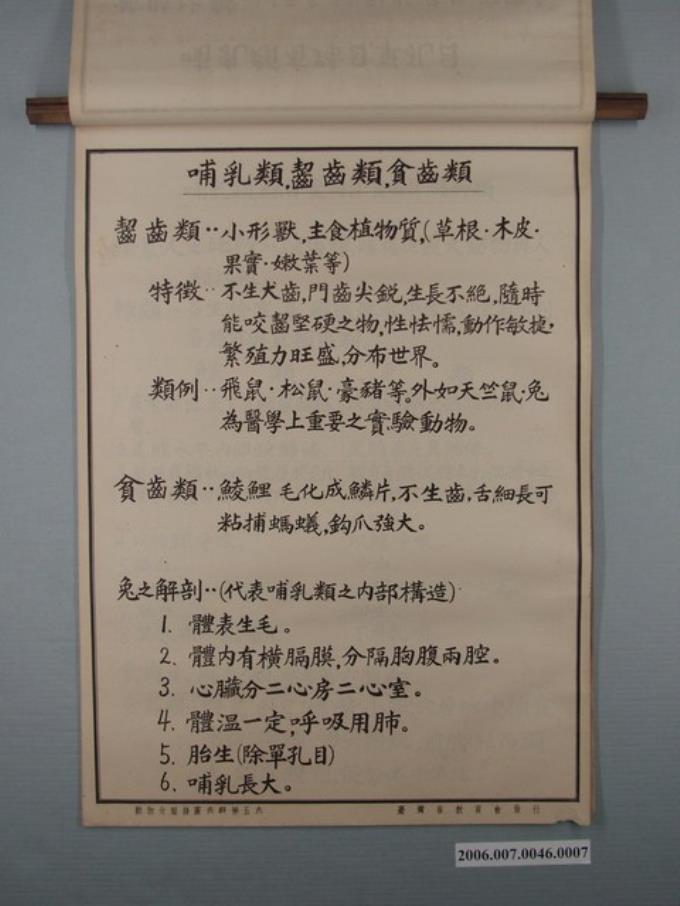 哺乳類,齧齒類,貧齒類
齧齒類‥小形獸,主食植物質,(草根·木皮·
果實·嫩葉等)
特徵‥不生犬齒,門齒尖銳,生長不絕,隨時
能咬齧堅硬之物,性怯懦,動作敏捷,
繁殖力旺盛,分布世界。
類例‥飛鼠·松鼠·豪豬等。外如天竺鼠·兔
為醫學上重要之實驗動物。
貧齒類‥鯪鯉毛化成鱗片,不生齒,舌細長可
粘捕螞蟻,鈎爪強大。
兔之解剖‥(代表哺乳類之内部構造)
1. 體表生毛。
2. 體内有橫膈膜,分隔胸腹兩腔。
3. 心臟分二心房二心室。
4. 體溫一定,呼吸用肺。
5. 胎生(除單孔目)
6. 哺乳長大。
臺灣省教育會發行
2006.007.0046.0007